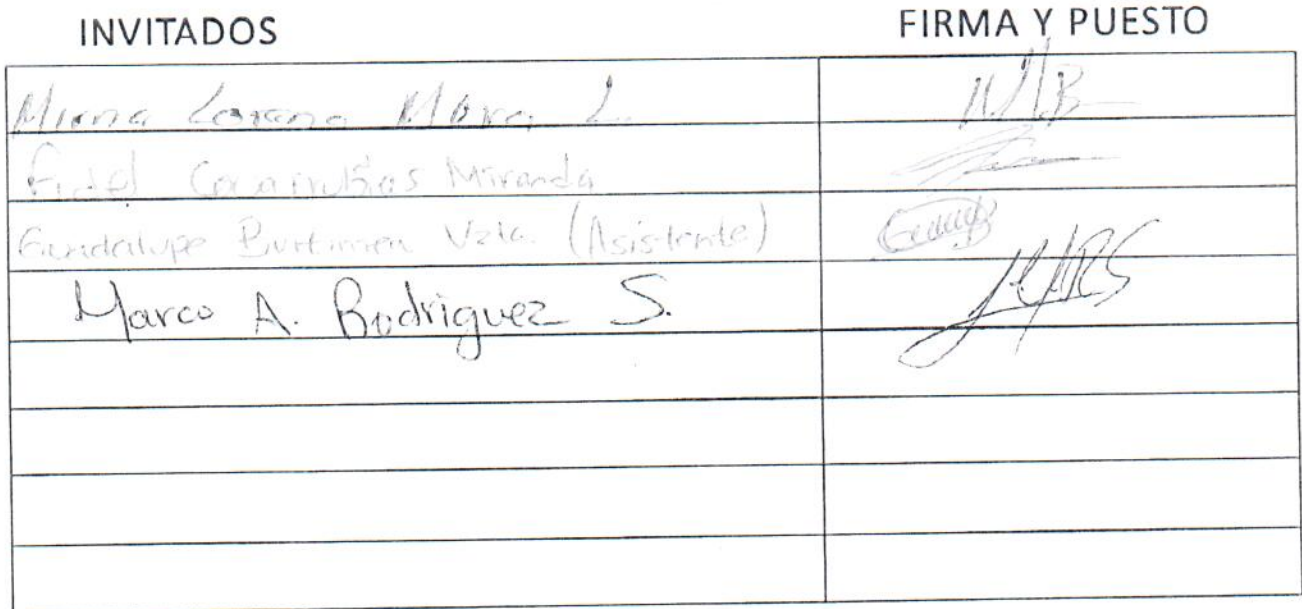 INVITADOS FIRMA Y PUESTO
Mirna Lorena Mora L.
Fidel Covarrubias Miranda
Guadalupe Vzla. (Asistente)
Marco A. Rodriguez S.